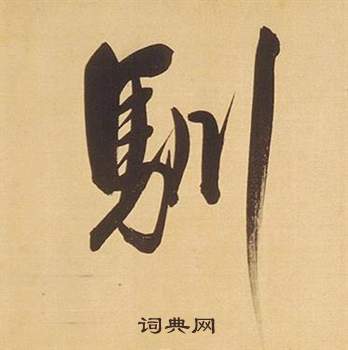 馴
词典网